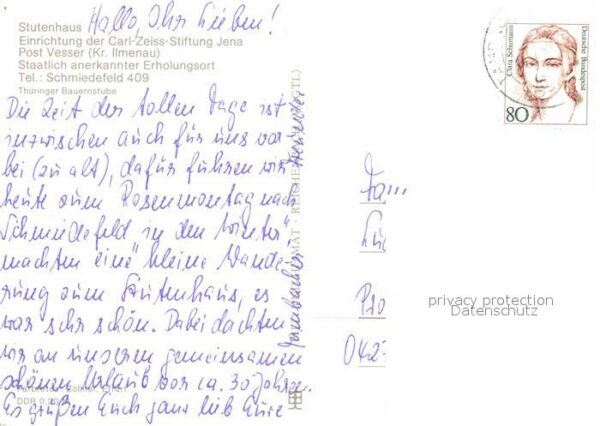 Hallo, Ihr Lieben!
Stutenhaus
Einrichtung der Carl-Zeiss-Stiftung Jena
Post Vesser (Kr. Ilmenau)
Staatlich anerkannter Erholungsort
Tel.: Schmiedefeld 409
Thüringer Bauernstube
Die Zeit der tollen Tage ist
inzwischen auch für uns vor
bei (zu alt), dafür fuhren wir
heute zum Rosenmontag nach
Schmiedefeld in den Winter,
machten eine kleine Wande
rung zum Stutenhaus, es
war sehr schön. Dabei dachten
wir an unseren gemeinsamen
schönen Urlaub vor ca. 30 Jahren.
Es grüßen Euch ganz lieb Eure
DDR 0,20
Clara Schumann
Deutsche Bundespost
80
Fam
042
privacy protection
Datenschutz